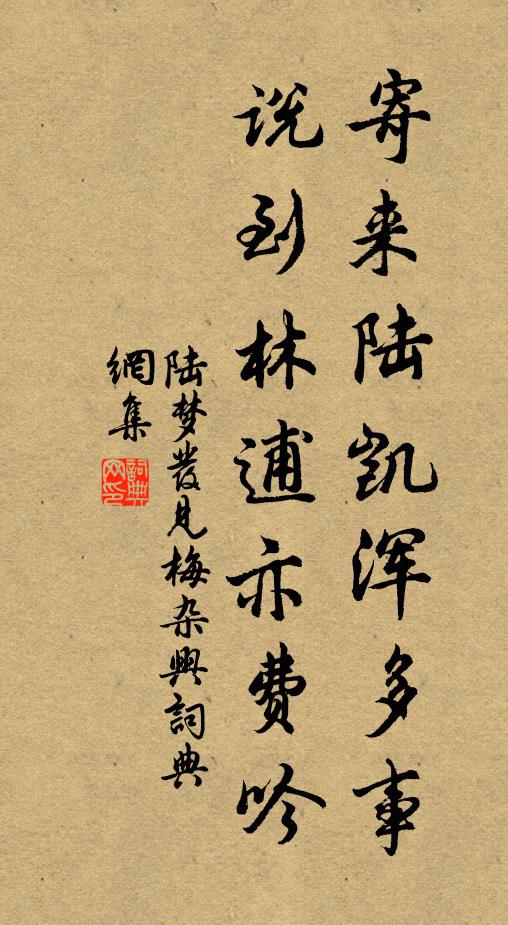 寄来陆凯浑多事
说到林逋亦费吟
陆梦发见梅杂興詞典
網集
詞典
网印